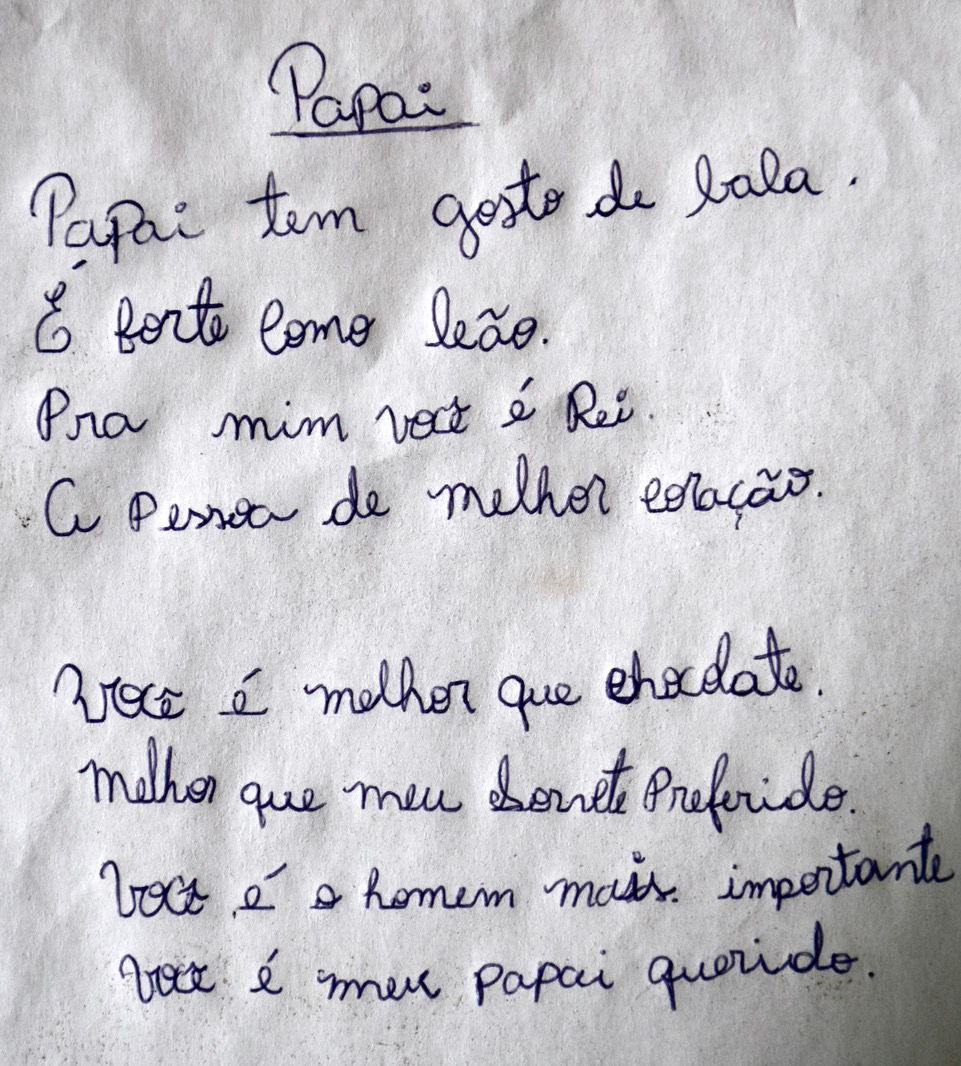 Papai
Papai tem gosto de bala.
É forte como leão.
Pra mim você é Rei.
A pessoa de melhor coração.
Você é melhor que chocolate.
Melhor que meu sorvete Preferido.
Você é o homem mais. importante
Você é meu papai querido.